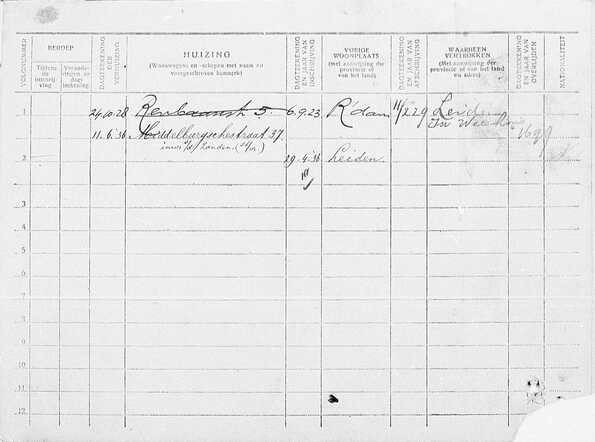 VOLGNUMMER
BEROEP
Tijdens de inschrijving
Veranderingen en dagteekening
DAGTEEKENING DER VERHUIZING
HUIZING
(Woonwagens en -schepen met naam en voorgeschreven kenmerk)
DAGTEEKENING EN JAAR VAN INSCHRIJVING
VORIGE WOONPLAATS
(Met aanwijzing der provincie of van het land)
DAGTEEKENING EN JAAR VAN AFSCHRIJVING
WAARHEEN VERTROKKEN
(Met aanwijzing der provincie of van het land en adres)
DAGTEEKENING EN JAAR VAN OVERLIJDEN
NATIONALITEIT
1 24.10.28 5. 6.9.23 R'dam 29 Leiden
11.6.36 straat 37.
Londen.
2 29.4.36 Leiden.
3
4
5
6
7
8
9
10
11
12